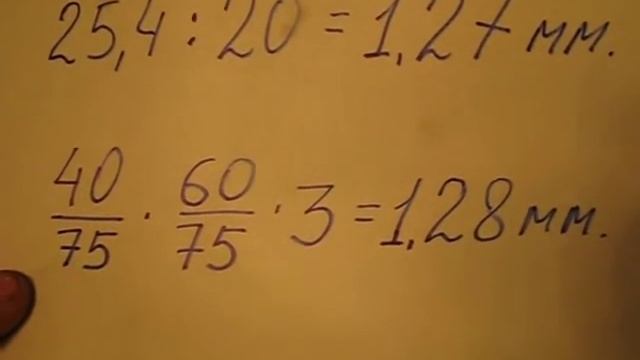 25,4 : 20 = 1,27 мм.
40/75 · 60/75 · 3 = 1,28 мм.